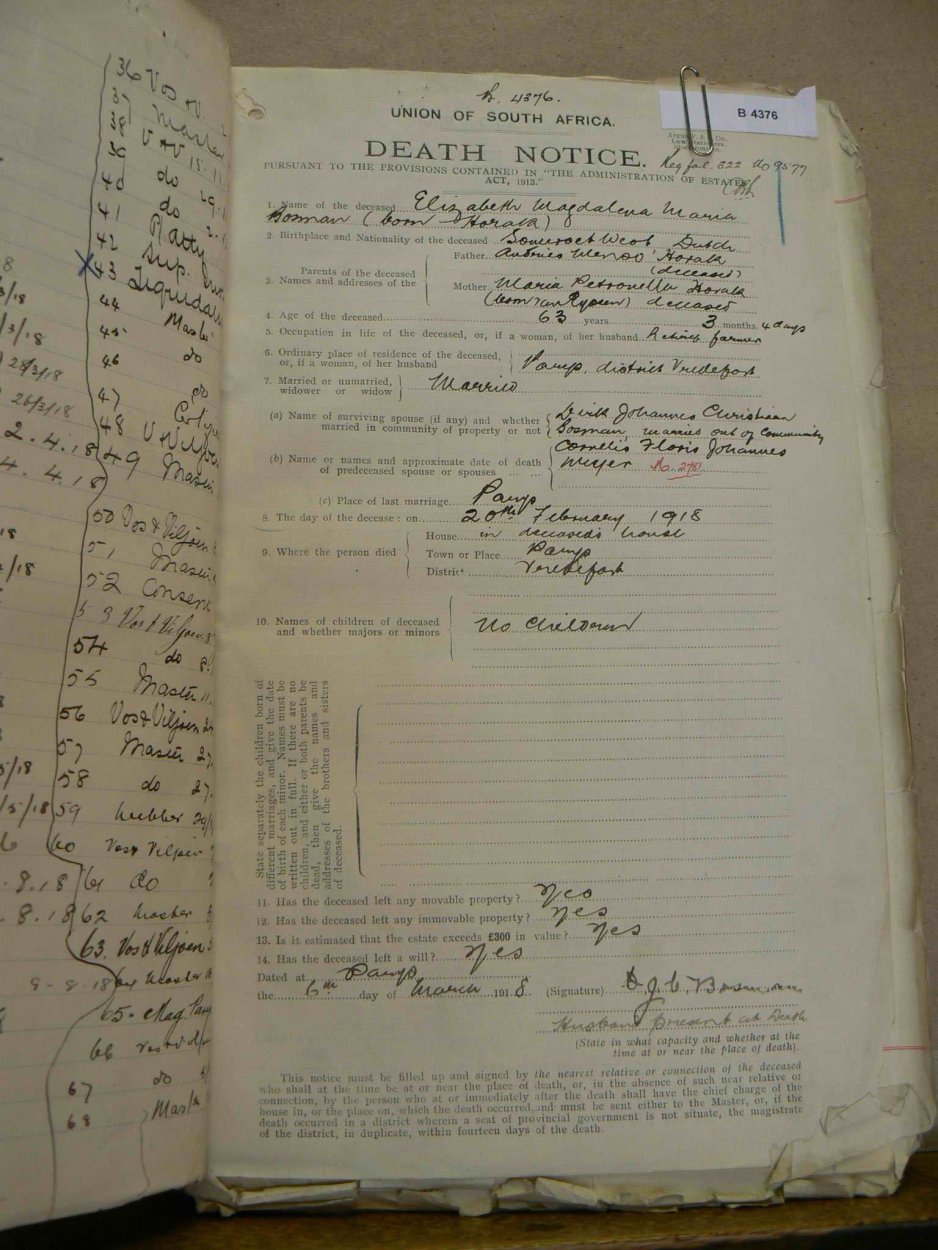 36 Vos & V
37 Master
38 V & V 15.11
39 do 29.
40 do
41 do
42 Sup.
43 Liquida
44
45 Maste
46 do
47 do
48 V & Viljoen
2.4.18 49 Maste
4.4.18
50 Vos & Viljoen
51 Maste
52 Consent
53 Vos & Viljoen
54 do
55 Master 11.
56 Vos & Viljoen
57 Master 27.
58 do 27.
59 Webber
60 Vos & Viljoen
8.18 61 do
8.18 62 Master
63. Vos & Viljoen
64 Master
65 - Mag.
66
67 do
68 Mast
B. 4376.
B 4376
UNION OF SOUTH AFRICA.
DEATH NOTICE. Reg fol. 322 No 9577
PURSUANT TO THE PROVISIONS CONTAINED IN "THE ADMINISTRATION OF ESTATES
ACT, 1913."
1. Name of the deceased Elizabeth Magdalena Maria
Bosman (born Horak)
2. Birthplace and Nationality of the deceased Somerset West, Dutch
3. Names and addresses of the Parents of the deceased
Father Menso Horak
(deceased)
Mother Maria Petronella Horak
(born deceased
4. Age of the deceased 63 years 3 months 4 days
5. Occupation in life of the deceased, or, if a woman, of her husband Retired farmer
6. Ordinary place of residence of the deceased,
or, if a woman, of her husband Parys, district Vredefort
7. Married or unmarried,
widower or widow Married
(a) Name of surviving spouse (if any) and whether
married in community of property or not Dirk Johannes Christiaan
Bosman married out of Community
(b) Name or names and approximate date of death
of predeceased spouse or spouses Cornelis Floris Johannes
Meyer No. 2781
(c) Place of last marriage Parys
8. The day of the decease: on 20th February 1918
9. Where the person died
House in deceased's house
Town or Place Parys
District Vredefort
10. Names of children of deceased
and whether majors or minors No Children
State separately the children born of
different marriages, and give the date
of birth of each minor. Names must be
written out in full. If there are no
children, and either or both parents be
dead, then give the names and
addresses of the brothers and sisters
of deceased.
11. Has the deceased left any movable property? Yes
12. Has the deceased left any immovable property? Yes
13. Is it estimated that the estate exceeds £300 in value? Yes
14. Has the deceased left a will? Yes
Dated at Parys
the 6th day of March 1918. (Signature) D.J.C. Bosman
Husband present at Death
(State in what capacity and whether at the
time at or near the place of death).
This notice must be filled up and signed by the nearest relative or connection of the deceased
who shall at the time be at or near the place of death, or, in the absence of such near relative or
connection, by the person who at or immediately after the death shall have the chief charge of the
house in, or the place on, which the death occurred, and must be sent either to the Master, or, if the
death occurred in a district wherein a seat of provincial government is not situate, the magistrate
of the district, in duplicate, within fourteen days of the death.